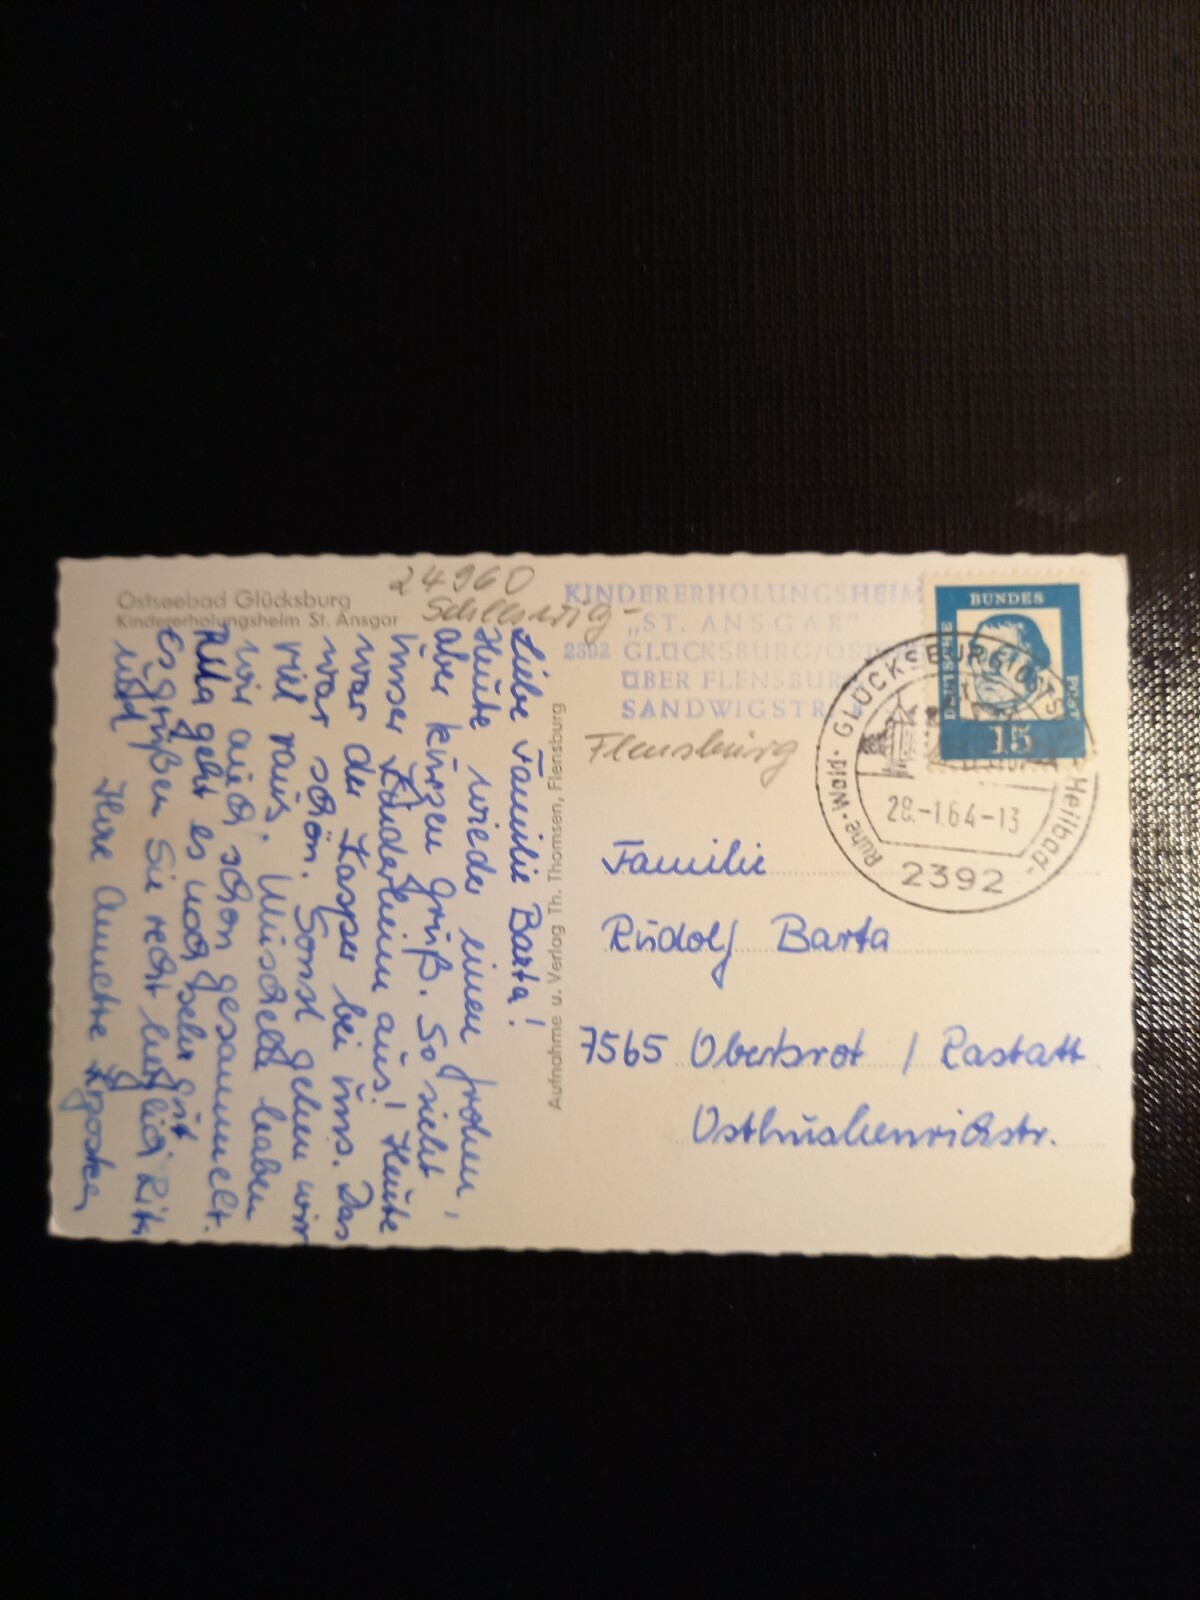 Ostseebad Glücksburg
Kindererholungsheim St. Ansgar
24960
Schleswig-
Flensburg
KINDERERHOLUNGSHEIM
„ST. ANSGAR"
2392 GLÜCKSBURG/OSTS
ÜBER FLENSBURG
SANDWIGSTR
DEUTSCHE BUNDES POST
15
GLÜCKSBURG (OSTSEE)
Ruhe · Wald · Heilbad
28.-1.64-13
2392
Liebe Familie Barta!
Heute wieder einen frohen,
aber kurzen Gruß. So sieht
unser Kinderheim aus! Heute
war der Kasper bei uns. Das
war schön. Sonst gehen wir
viel raus. Muscheln haben
wir auch schon gesammelt.
geht es noch sehr gut
Es grüßen Sie recht herzlich
und
Ihre Annette
Aufnahme u. Verlag Th. Thomsen, Flensburg
Familie
Rudolf Barta
7565 Obertsrot / Rastatt